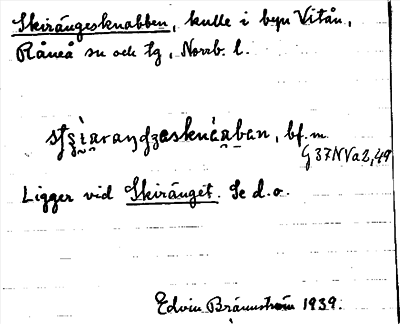 Skirängesknabben, kulle i byn Vitån,
Råneå sn och tg, Norrb. l.
bf. m
G37NVa2,49
Ligger vid Skiränget. Se d. o.
Edvin Brännström 1939.